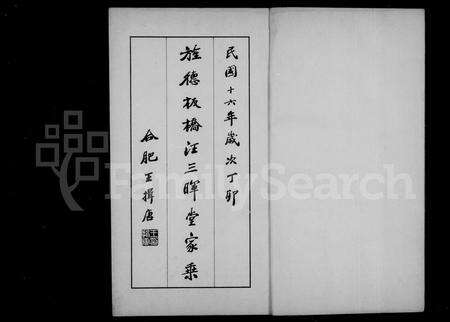 民國十六年歲次丁卯
旌德板橋汪三暉堂家乘
合肥王揖唐
FamilySearch